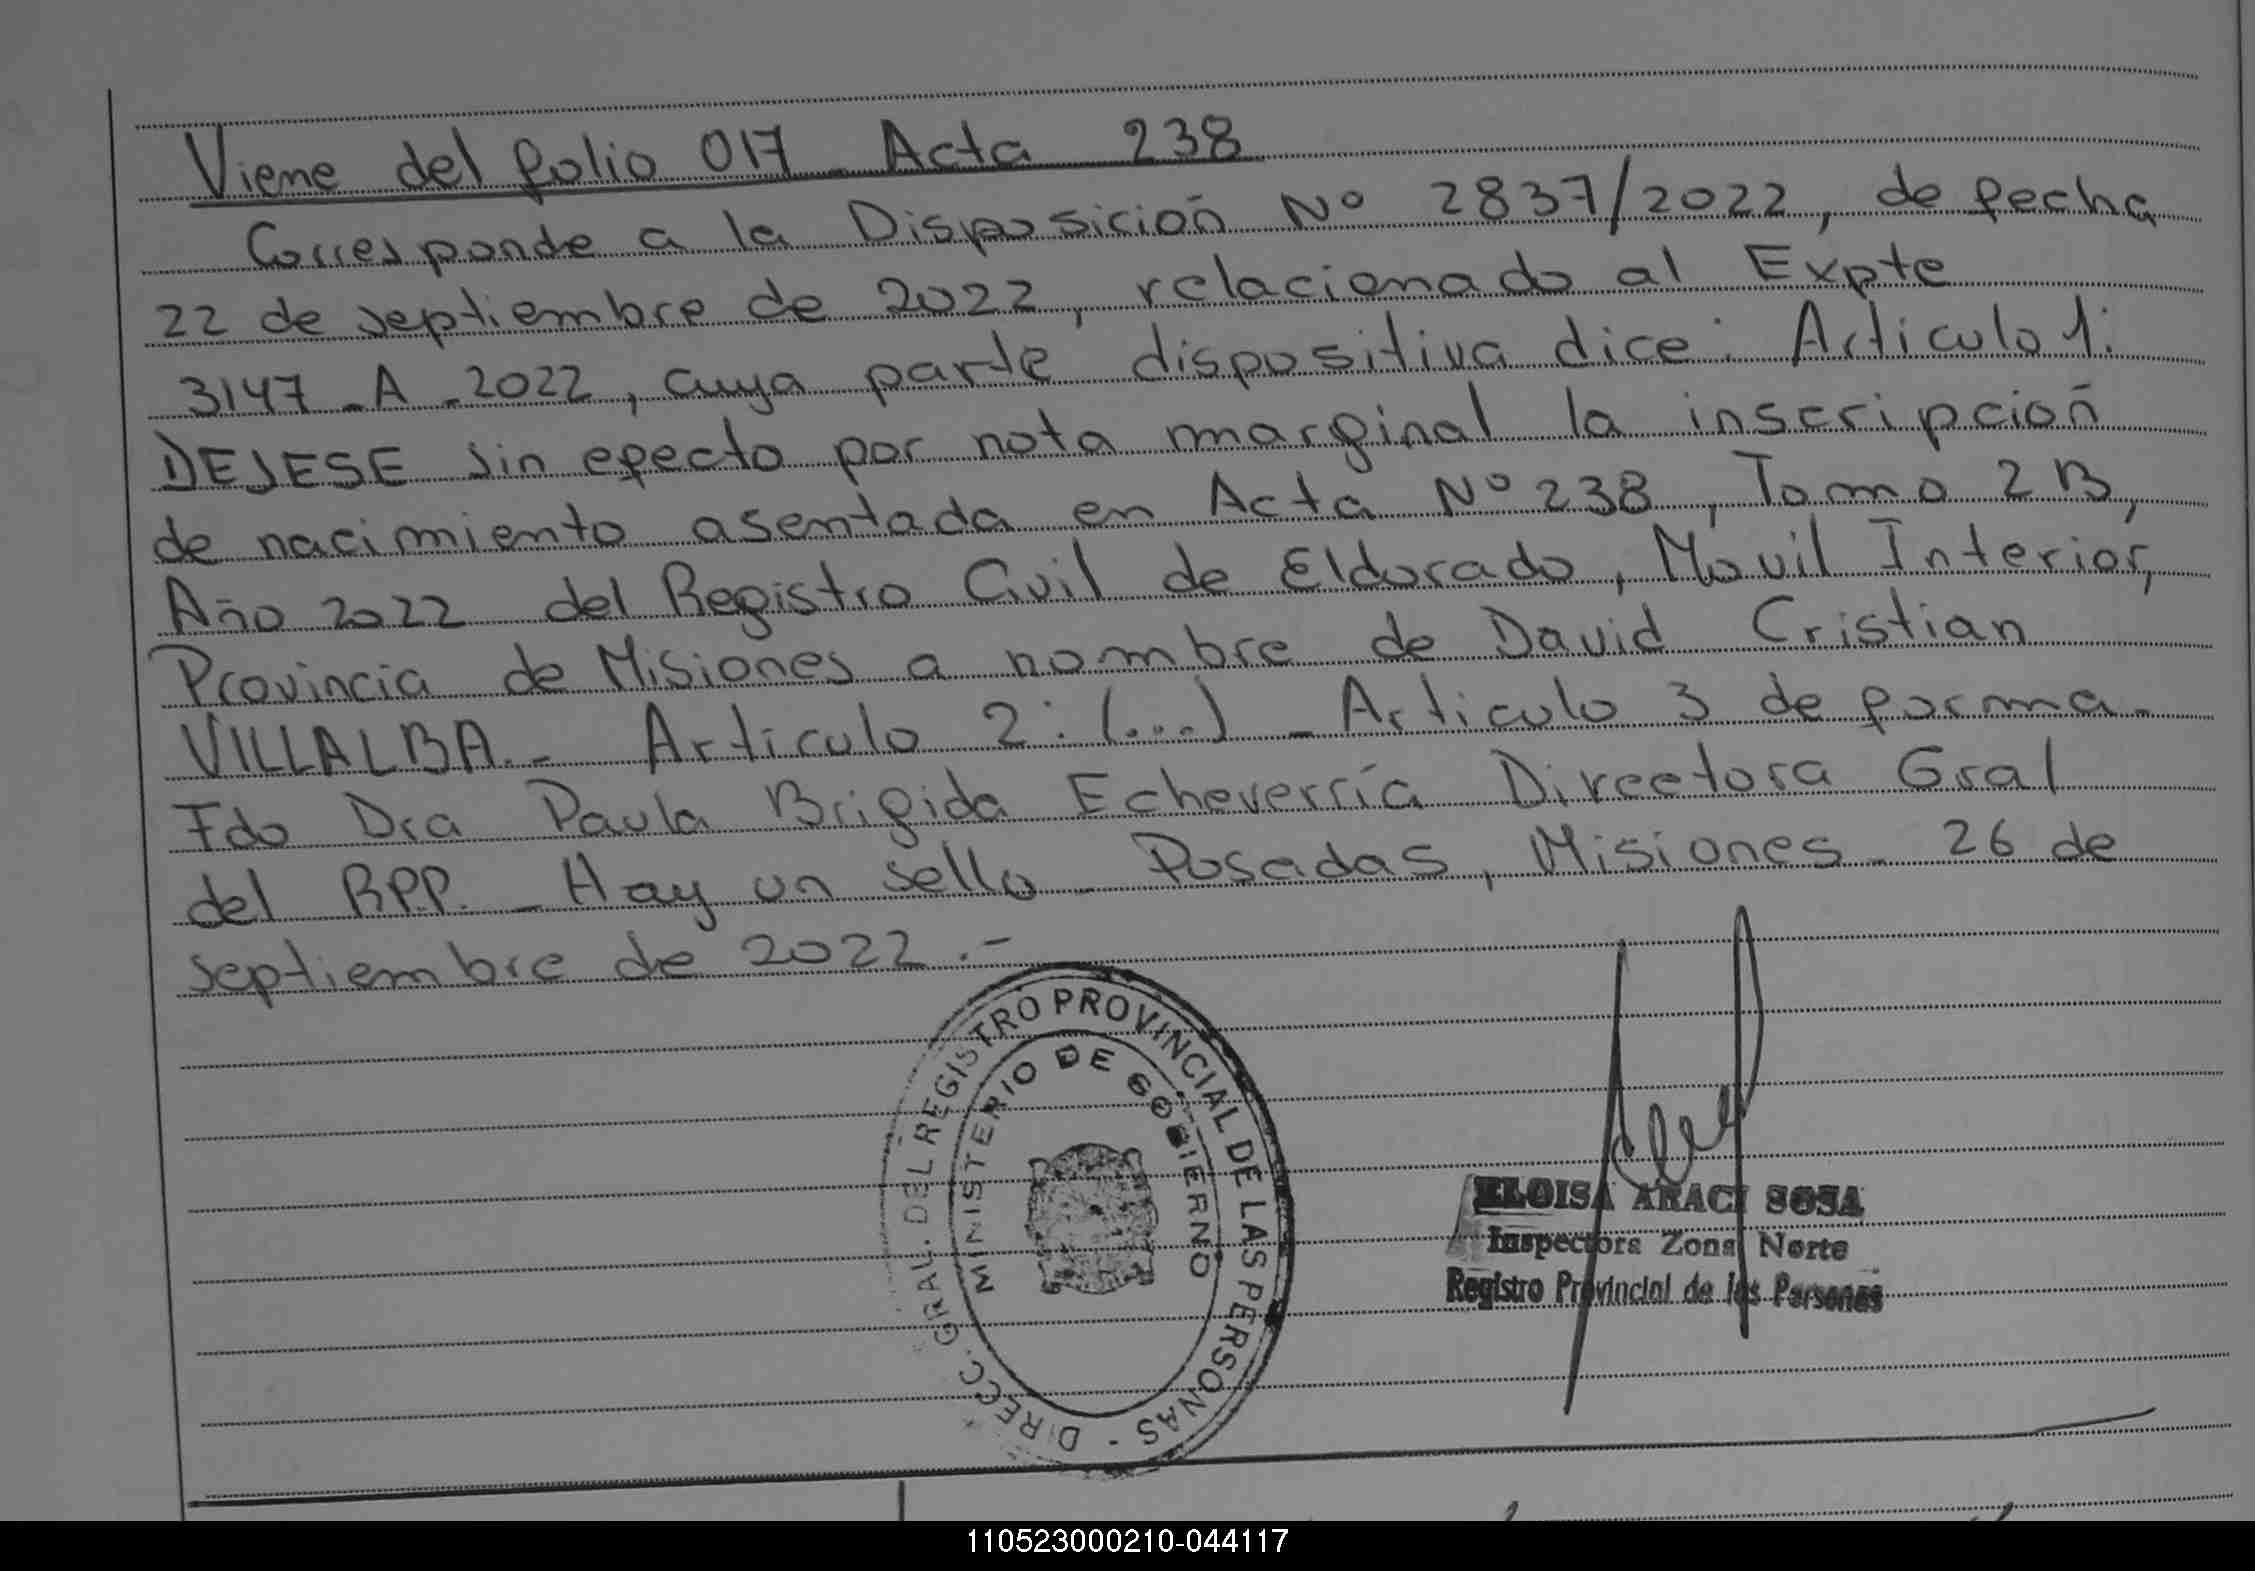 Viene del folio 017 - Acta 238
Corresponde a la Disposición Nº 2837/2022, de fecha
22 de septiembre de 2022, relacionado al Expte
3147 - A - 2022, cuya parte dispositiva dice: Articulo 1:
DEJESE sin efecto por nota marginal la inscripción
de nacimiento asentada en Acta Nº 238, Tomo 2B,
Año 2022 del Registro Civil de Eldorado, Móvil Interior,
Provincia de Misiones a nombre de David Cristian
VILLALBA.- Articulo 2: (...) - Articulo 3 de forma.
Fdo Dra Paula Brigida Echeverría Directora Gral
del RPP. - Hay un sello - Posadas, Misiones - 26 de
septiembre de 2022.-
DIRECC. GRAL. DEL REGISTRO PROVINCIAL DE LAS PERSONAS -
MINISTERIO DE GOBIERNO
ELOISA ARACI SOSA
Inspectora Zona Norte
Registro Provincial de las Personas
110523000210-044117